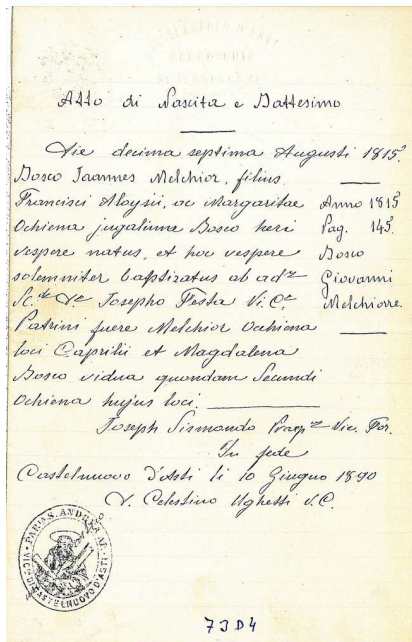 Atto di Nascita e Battesimo
Die decima septima Augusti 1815.
Bosco Joannes Melchior, filius
Francisci Aloysii, ac Margaritae
Ochiena jugalium Bosco heri
vespere natus, et hoc vespere
solemniter baptizatus ab adm
Josepho Festa Vi. C.
Patrini fuere Melchior Ochiena
loci Caprilii et Magdalena
Bosco vidua quondam Secundi
Ochiena hujus loci.
Anno 1815
Pag. 145.
Bosco
Giovanni
Melchiorre.
Joseph Sismondo Vic. For.
In fede
Castelnuovo d'Asti li 10 Giugno 1890
Celestino Ughetti V.C.
73D4